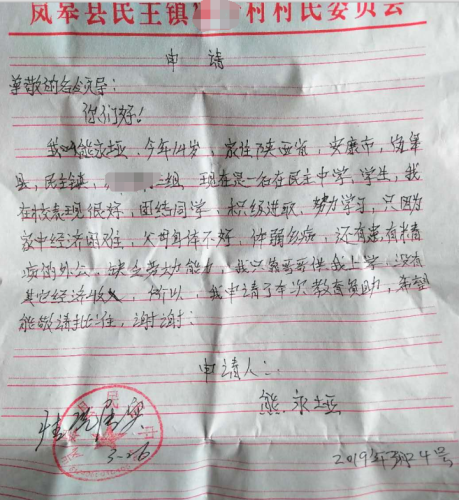 岚皋县民主镇 村村民委员会
申请
尊敬的各位领导:
你们好!
我叫熊永垭,今年14岁,家住陕西省,安康市,岚皋
县,民主镇, 三组,现在是一名在民主中学,学生,我
在校表现很好,团结同学,积极进取,努力学习,只因为
家中经济困难,父母身体不好,体弱多病,还有患有精
病的外公,缺乏劳动能力,我只靠哥哥供我上学,没有
其它经济收入,所以,我申请了本次教育资助,希望
能敬请批准,谢谢:
申请人:
熊永垭
情况属实
3-26
2019年3月24号